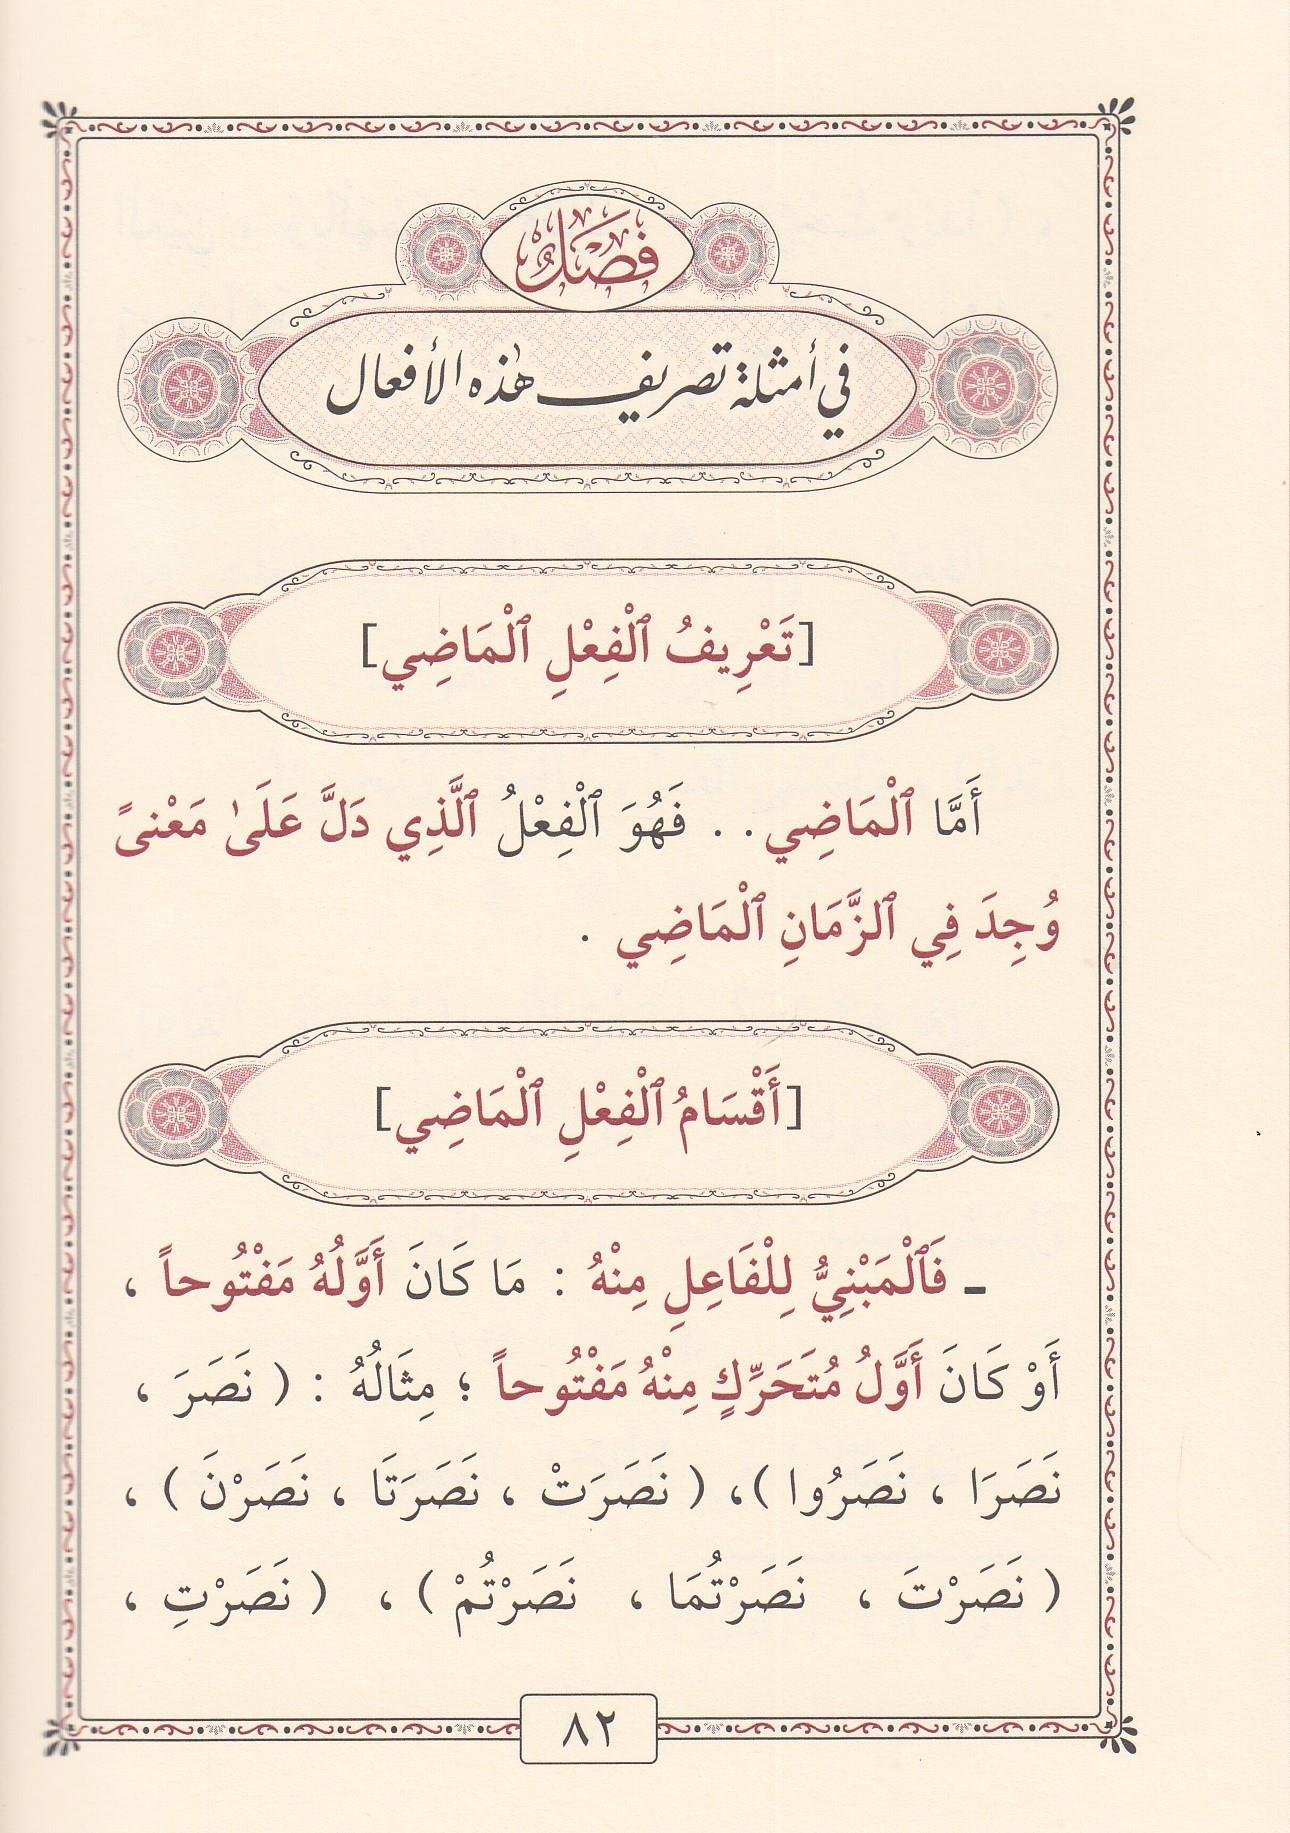 فَصْلٌ
في أمثلة تصريف هٰذه الأفعال
[تَعْرِيفُ ٱلْفِعْلِ ٱلْمَاضِي]
أَمَّا ٱلْمَاضِي . . فَهُوَ ٱلْفِعْلُ ٱلَّذِي دَلَّ عَلَىٰ مَعْنىً
وُجِدَ فِي ٱلزَّمَانِ ٱلْمَاضِي .
[أَقْسَامُ ٱلْفِعْلِ ٱلْمَاضِي]
ـ فَٱلْمَبْنِيُّ لِلْفَاعِلِ مِنْهُ : مَا كَانَ أَوَّلُهُ مَفْتُوحاً ،
أَوْ كَانَ أَوَّلُ مُتَحَرِّكٍ مِنْهُ مَفْتُوحاً ؛ مِثَالُهُ : ( نَصَرَ ،
نَصَرَا ، نَصَرُوا )، ( نَصَرَتْ ، نَصَرَتَا ، نَصَرْنَ ) ،
( نَصَرْتَ ، نَصَرْتُمَا ، نَصَرْتُمْ ) ، ( نَصَرْتِ ،
٨٢